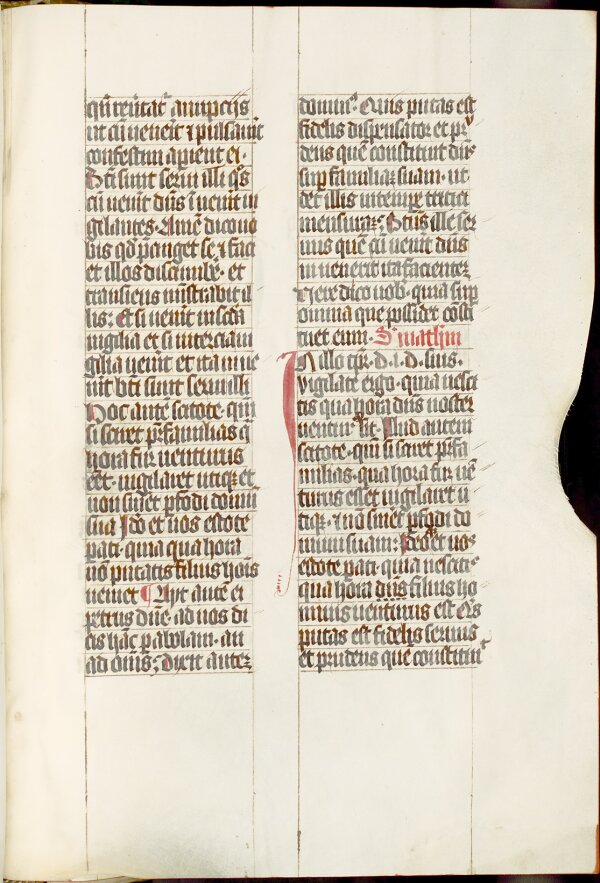 qñ reu̾tat̾ a nupcijs
ut cū uen̾eit ⁊ pulsaūit
confestim apient ei·
Bt̄i sunt serui illi q̾s
cū uen̾it dn̄s īuen̾it ui
gilantes· Amē dico uo
bis qd̾ p̄cinget se ⁊ faci
et illos discumb̾e· et
transiens mīstrabit il
lis: Et si uen̾it in sc̄da
uigilia et si in tercia ui
gilia uen̾it et ita inue
nit̾ bt̄i sunt serui illi
Hoc aute̅ scitote· qm̄
si sciret pr̄familias q̄
hora fur uenturus
eēt· uigilaret utiq̾ et
non sineret p̱fodi domū
suā Ido et uos estote
pati· quia qua hora
nō putatis filius hoı̄s
ueniet ¶ Ayt aute̅ ei
petrus dn̄e· ad nos di
cis hāc parabolam· an
ad om̄s; dixit autez
domin̾· Quis putas est
fidelis dispensator et pr̄
dens quē constituit dn̄s
sup̱ familiā suam· ut
det illis in tempe tritici
mensurā; Bt̄us ille ser
uus quē cū uen̾it dn̄s
inuenerit ita facientez
Uere dico uob̾· quia sup̱
omnia que possidet cōsti
tuet eum· S· mathm
In illo tp̱r· d· i· d· suis·
vigilate ergo· quia nesci
tis qua hora dn̄s uoster
uentur̾ sit· Illud autem
scitote· qm̄ si sciret pr̄fa
milias· qua hora fur uē
turus esset uigilaret u
tiq̾· ⁊ nō sin̾et p̱fodi do
mum suam: Ideo et uos
estote pati· quia nescitis
qua hora dn̄s filius ho
minis uenturus est Q̾s
putas est fidelis seruus
et prudens quē constituit